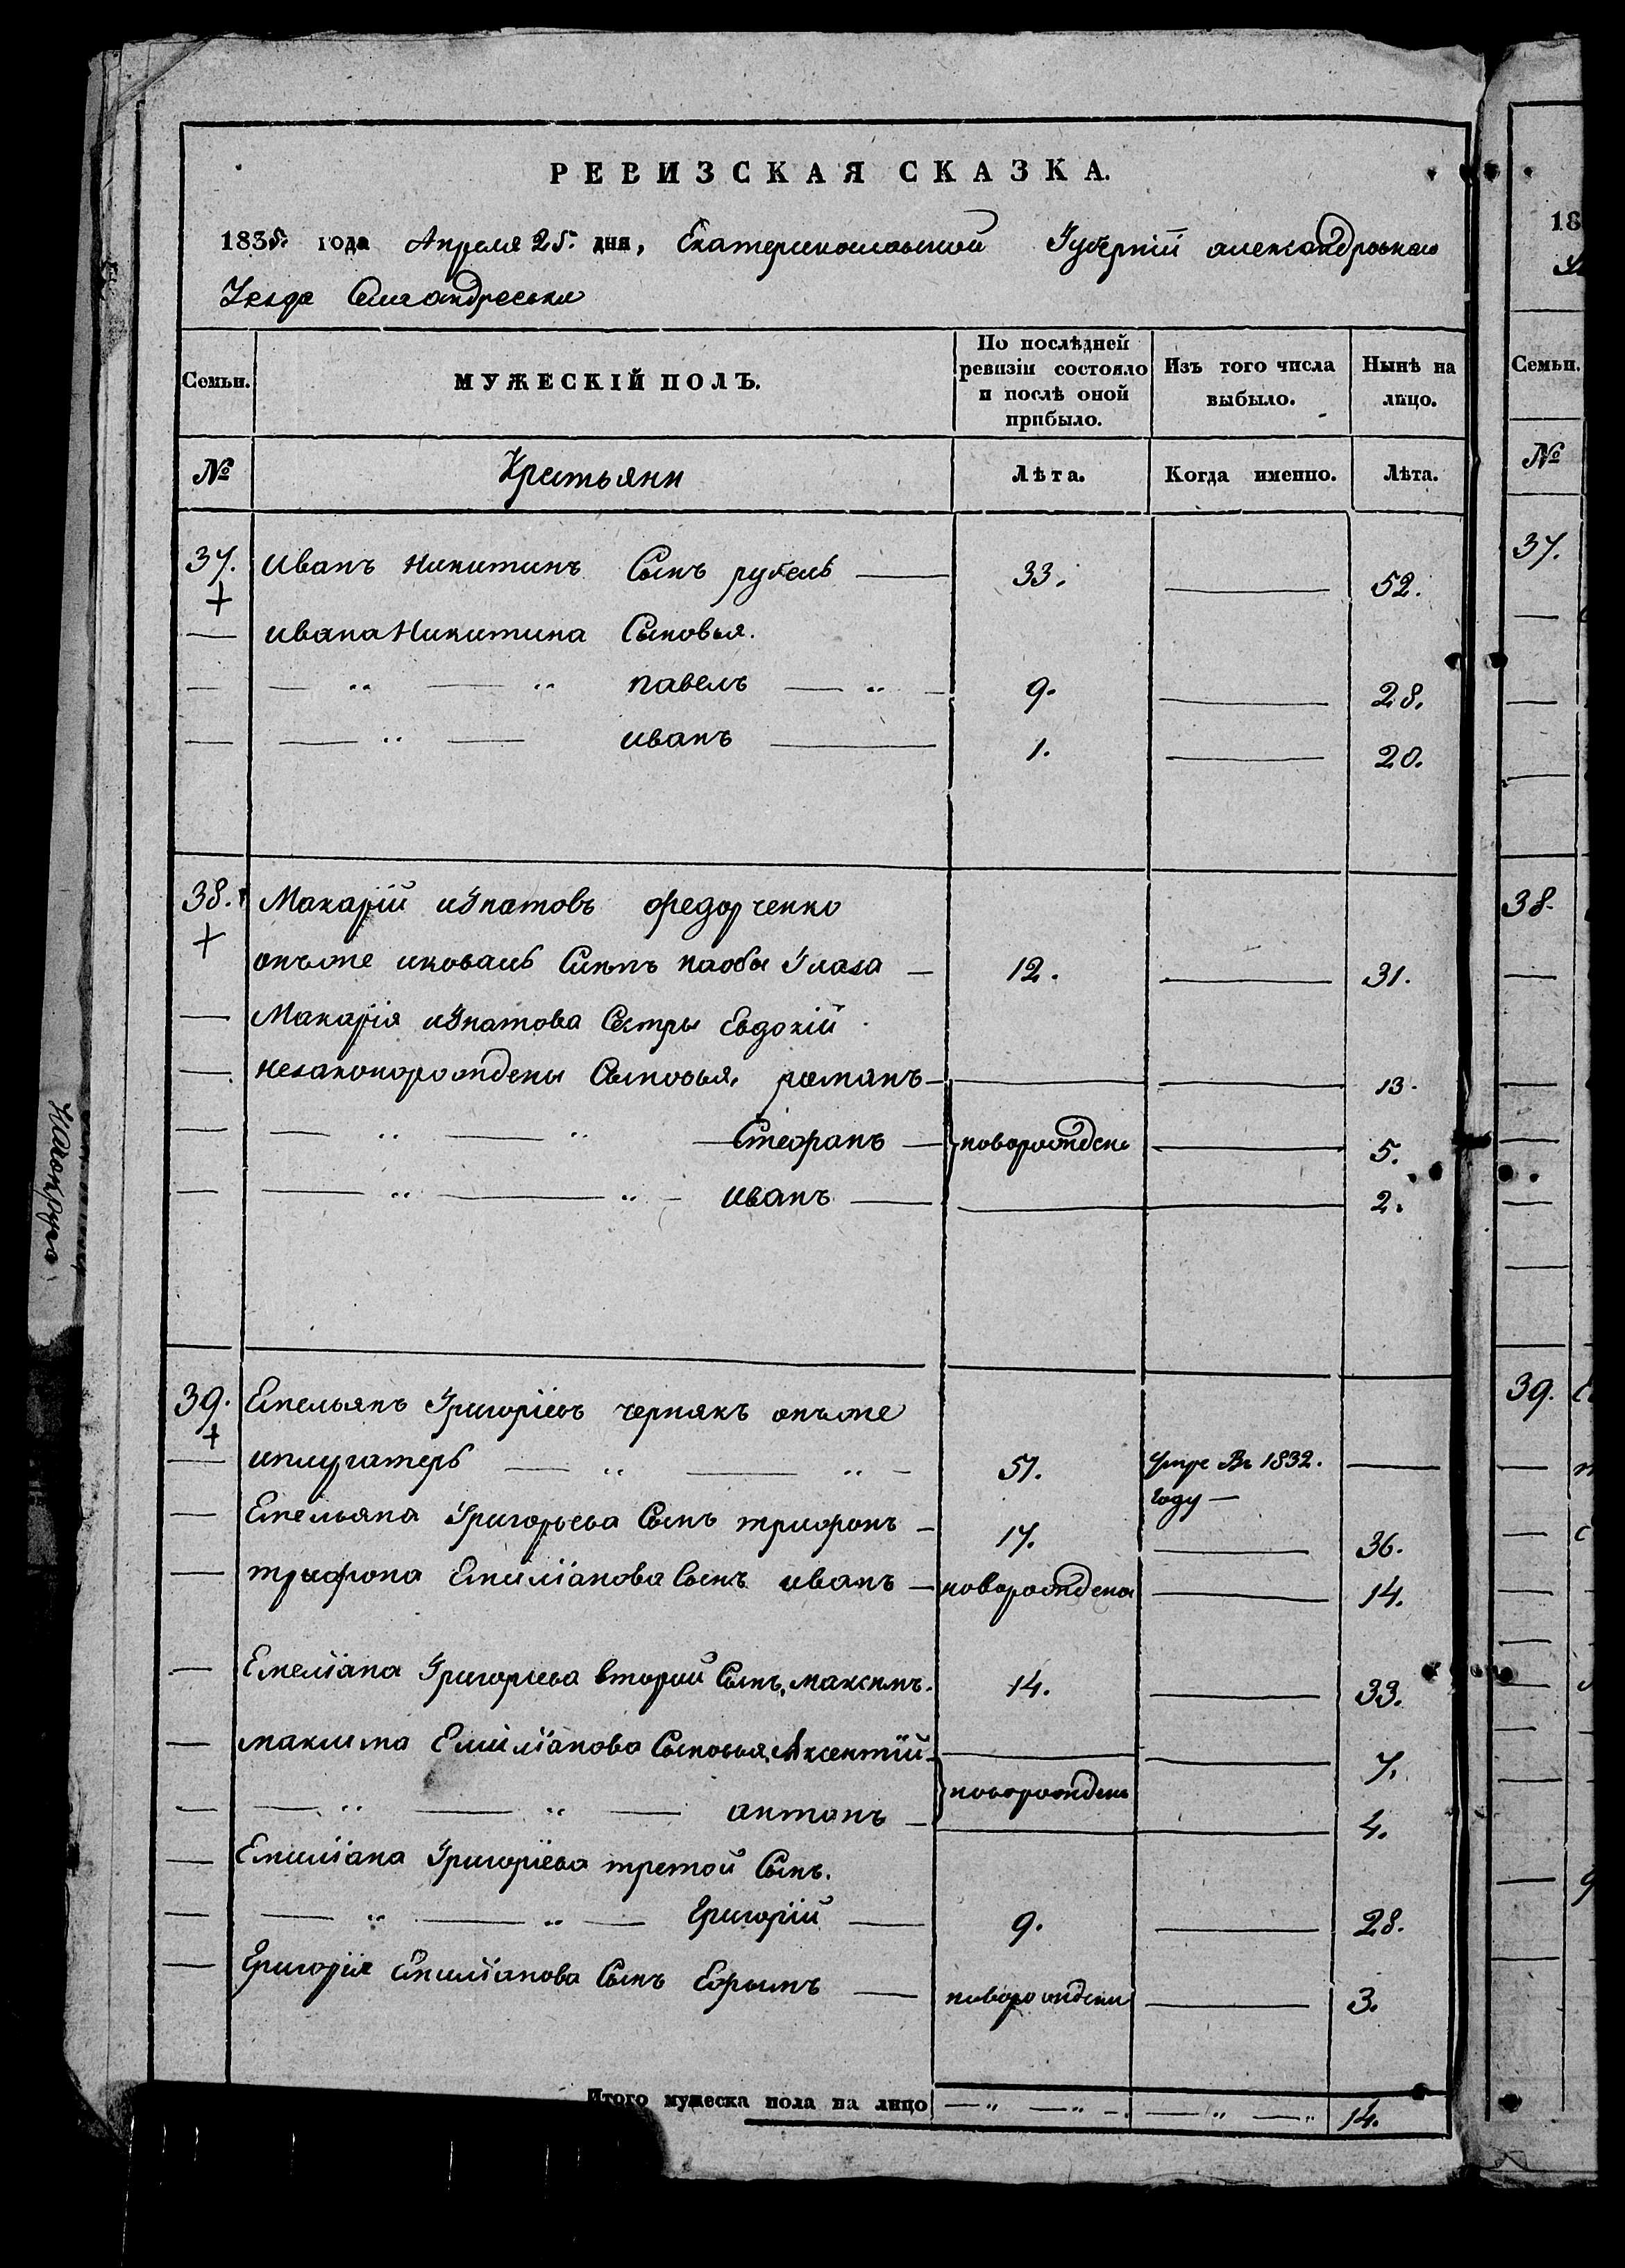 РЕВИЗСКАЯ СКАЗКА.
1835. года Апреля 25. дня, Екатеринославской Губерніи александровкаго
Уезда
Семьи.
МУЖЕСКІЙ ПОЛЪ.
По послѣдней ревизіи состояло и послѣ оной прибыло.
Изъ того числа выбыло.
Нынѣ на лицо.
№
Крестьяни
Лѣта.
Когда именно.
Лѣта.
37. Иванъ Никитинъ Сынъ рубель 33. 52.
ивана Никитина Сыновья.
павелъ 9. 28.
иванъ 1. 20.
38. Макарій игнатовъ федорченко
онъже иковаль Слепъ наобы Глаза 12. 31.
Макарія игнатова Сестры Евдокій
незаконорождены Сыновья, романъ 13.
Стефанъ новорождены 5.
иванъ 2.
39. Емельянъ Григоріевъ чернякъ онъже
иплугатерь 51. умре Въ 1832.
году
Емельяна Григорьева Сынъ трифонъ 17. 36.
трифона Емиліанова Сынъ иванъ новорожденъ 14.
Емеліана Григоріева вторий Сынъ, максимъ. 14. 33.
максима Емиліанова Сыновья, Аксентій 7.
новорождены
антонъ 4.
Емиліана Григоріева третой Сынъ.
Григорій 9. 28.
Григорія Емиліанова Сынъ Ефримъ новорожденъ 3.
Итого мужеска пола на лицо 14.
18
Семьи.
№
37.
38.
39.